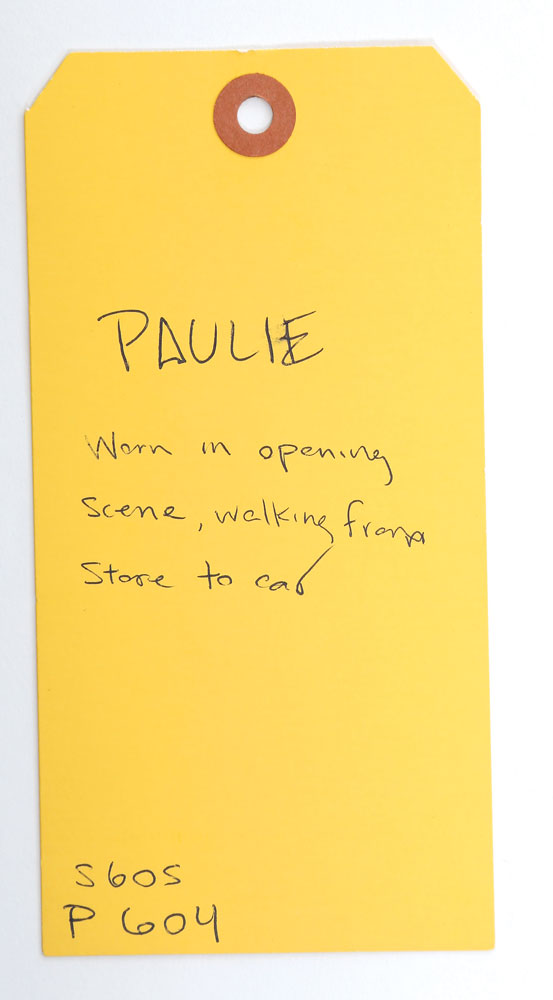 PAULIE
Worn in opening
scene, walking from
store to car
S605
P 604